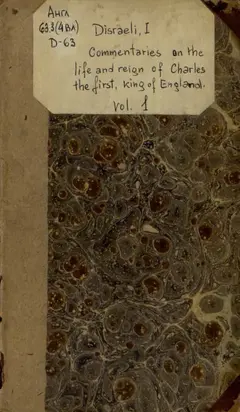 Англ
63.3(4Вл) Disraeli, I
D-63
Commentaries on the
life and reign of Charles
the first, king of England.
vol. 1